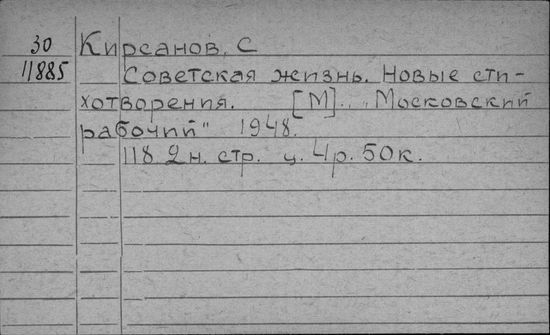 30 Кирсанов, С
11885 Советская жизнь. Новые сти-
хотворения. [М]., „Московский
рабочий" 1948.
118 2н. стр. ц. 4р. 50к.